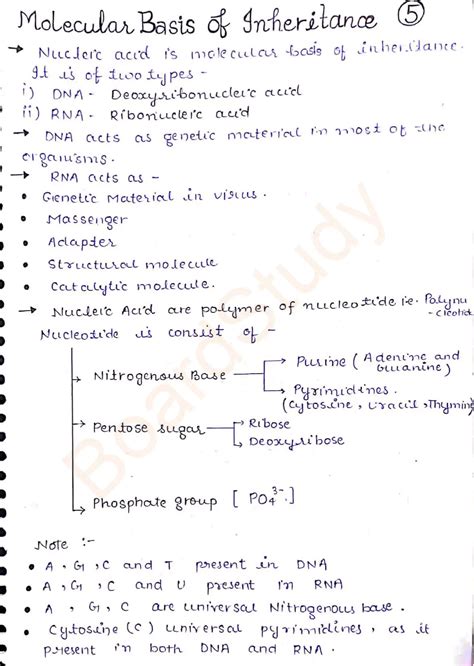 Molecular Basis of Inheritance ⑤
→ Nucleic acid is molecular basis of inheritance.
It is of two types -
i) DNA - Deoxyribonucleic acid
ii) RNA - Ribonucleic acid
→ DNA acts as genetic material in most of the
organisms.
→ RNA acts as -
• Genetic Material in virus.
• Massenger
• Adapter
• Structural molecule
• Catalytic molecule.
→ Nucleic Acid are polymer of nucleotide i.e. Polynu
- cleotide
Nucleotide is consist of -
→ Nitrogenous Base → Purine (Adenine and
Guanine)
→ Pyrimidines.
(Cytosine, Uracil, Thymine
→ Pentose sugar → Ribose
→ Deoxyribose
→ Phosphate group [PO₄³⁻.]
Note :-
• A, G, C and T present in DNA
• A, G, C and U present in RNA
• A, G, C are universal Nitrogenous base.
• Cytosine (C) universal pyrimidines, as it
present in both DNA and RNA.
BoardStudy